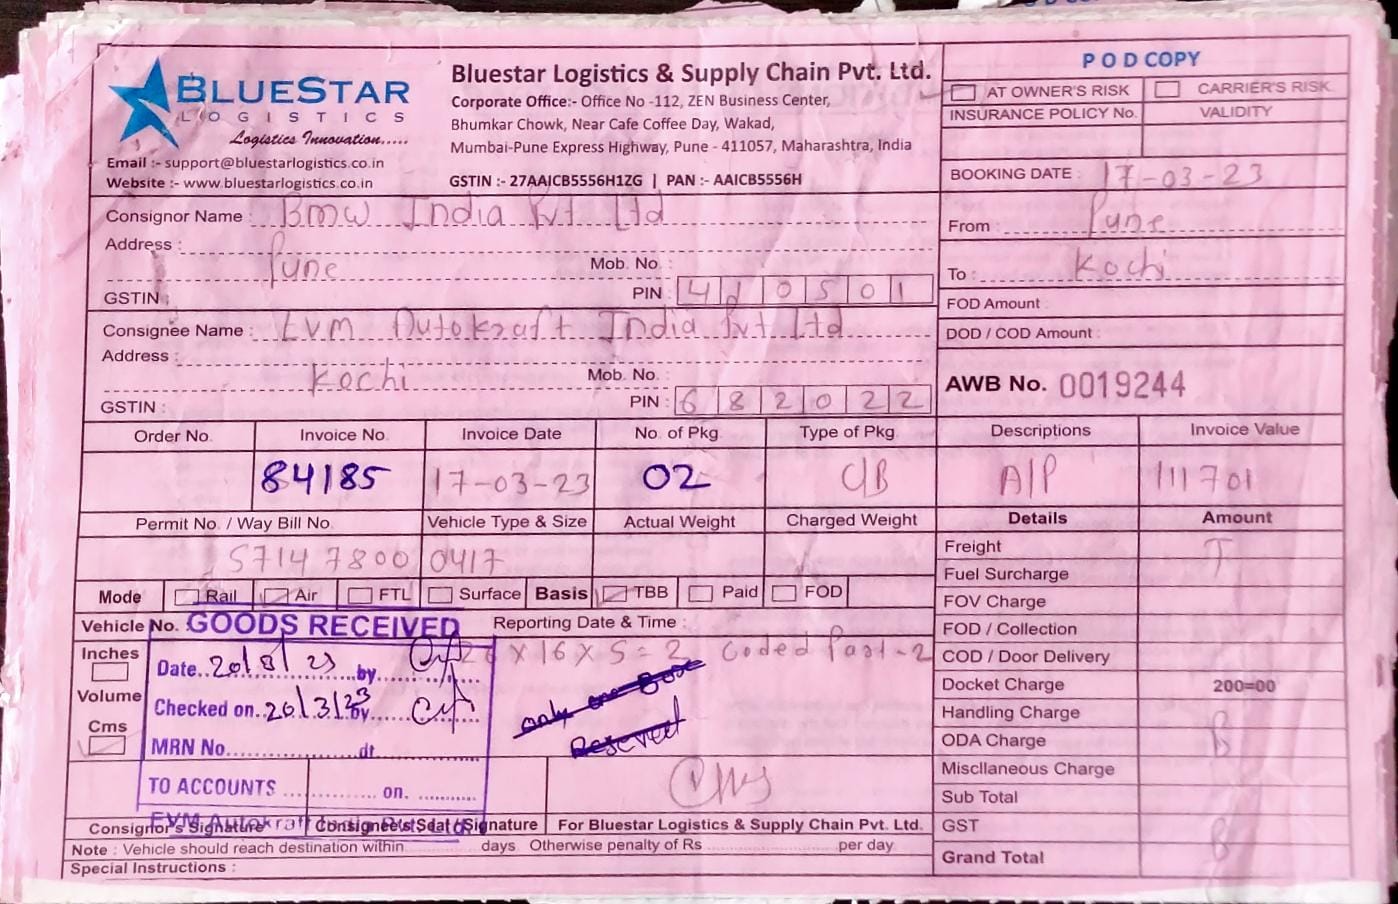 BLUESTAR
LOGISTICS
Logistics Innovation.....
Email :- support@bluestarlogistics.co.in
Website :- www.bluestarlogistics.co.in
Bluestar Logistics & Supply Chain Pvt. Ltd.
Corporate Office:- Office No -112, ZEN Business Center,
Bhumkar Chowk, Near Cafe Coffee Day, Wakad,
Mumbai-Pune Express Highway, Pune - 411057, Maharashtra, India
GSTIN :- 27AAICB5556H1ZG | PAN :- AAICB5556H
POD COPY
AT OWNER'S RISK CARRIER'S RISK
INSURANCE POLICY No. VALIDITY
BOOKING DATE : 17-03-23
Consignor Name : BMW India Pvt Ltd
Address :
Pune Mob. No. :
GSTIN : PIN : 410501
From : Pune
To : Kochi
FOD Amount :
DOD / COD Amount :
Consignee Name : EVM Autokraft India Pvt Ltd
Address :
Kochi Mob. No. :
GSTIN : PIN : 682022
AWB No. 0019244
Order No. Invoice No. Invoice Date No. of Pkg. Type of Pkg. Descriptions Invoice Value
84185 17-03-23 02 C/B A/P 111701
Permit No. / Way Bill No. Vehicle Type & Size Actual Weight Charged Weight Details Amount
5714 7800 0417
Mode Rail Air FTL Surface Basis TBB Paid FOD
Vehicle No. Reporting Date & Time :
Inches
Volume
Cms
GOODS RECEIVED
Date..20/3/23 by
Checked on..20/3/23 by
MRN No. dt.
TO ACCOUNTS on.
EVM Autokraft India Pvt. Ltd
26 X 16 X 5 = 2 Coded Part-2
only one Box
Received
Freight
Fuel Surcharge
FOV Charge
FOD / Collection
COD / Door Delivery
Docket Charge 200=00
Handling Charge
ODA Charge
Miscllaneous Charge
Sub Total
GST
Grand Total
Consignor's Signature Consignee's Seal / Signature For Bluestar Logistics & Supply Chain Pvt. Ltd.
Note : Vehicle should reach destination within days Otherwise penalty of Rs per day
Special Instructions :